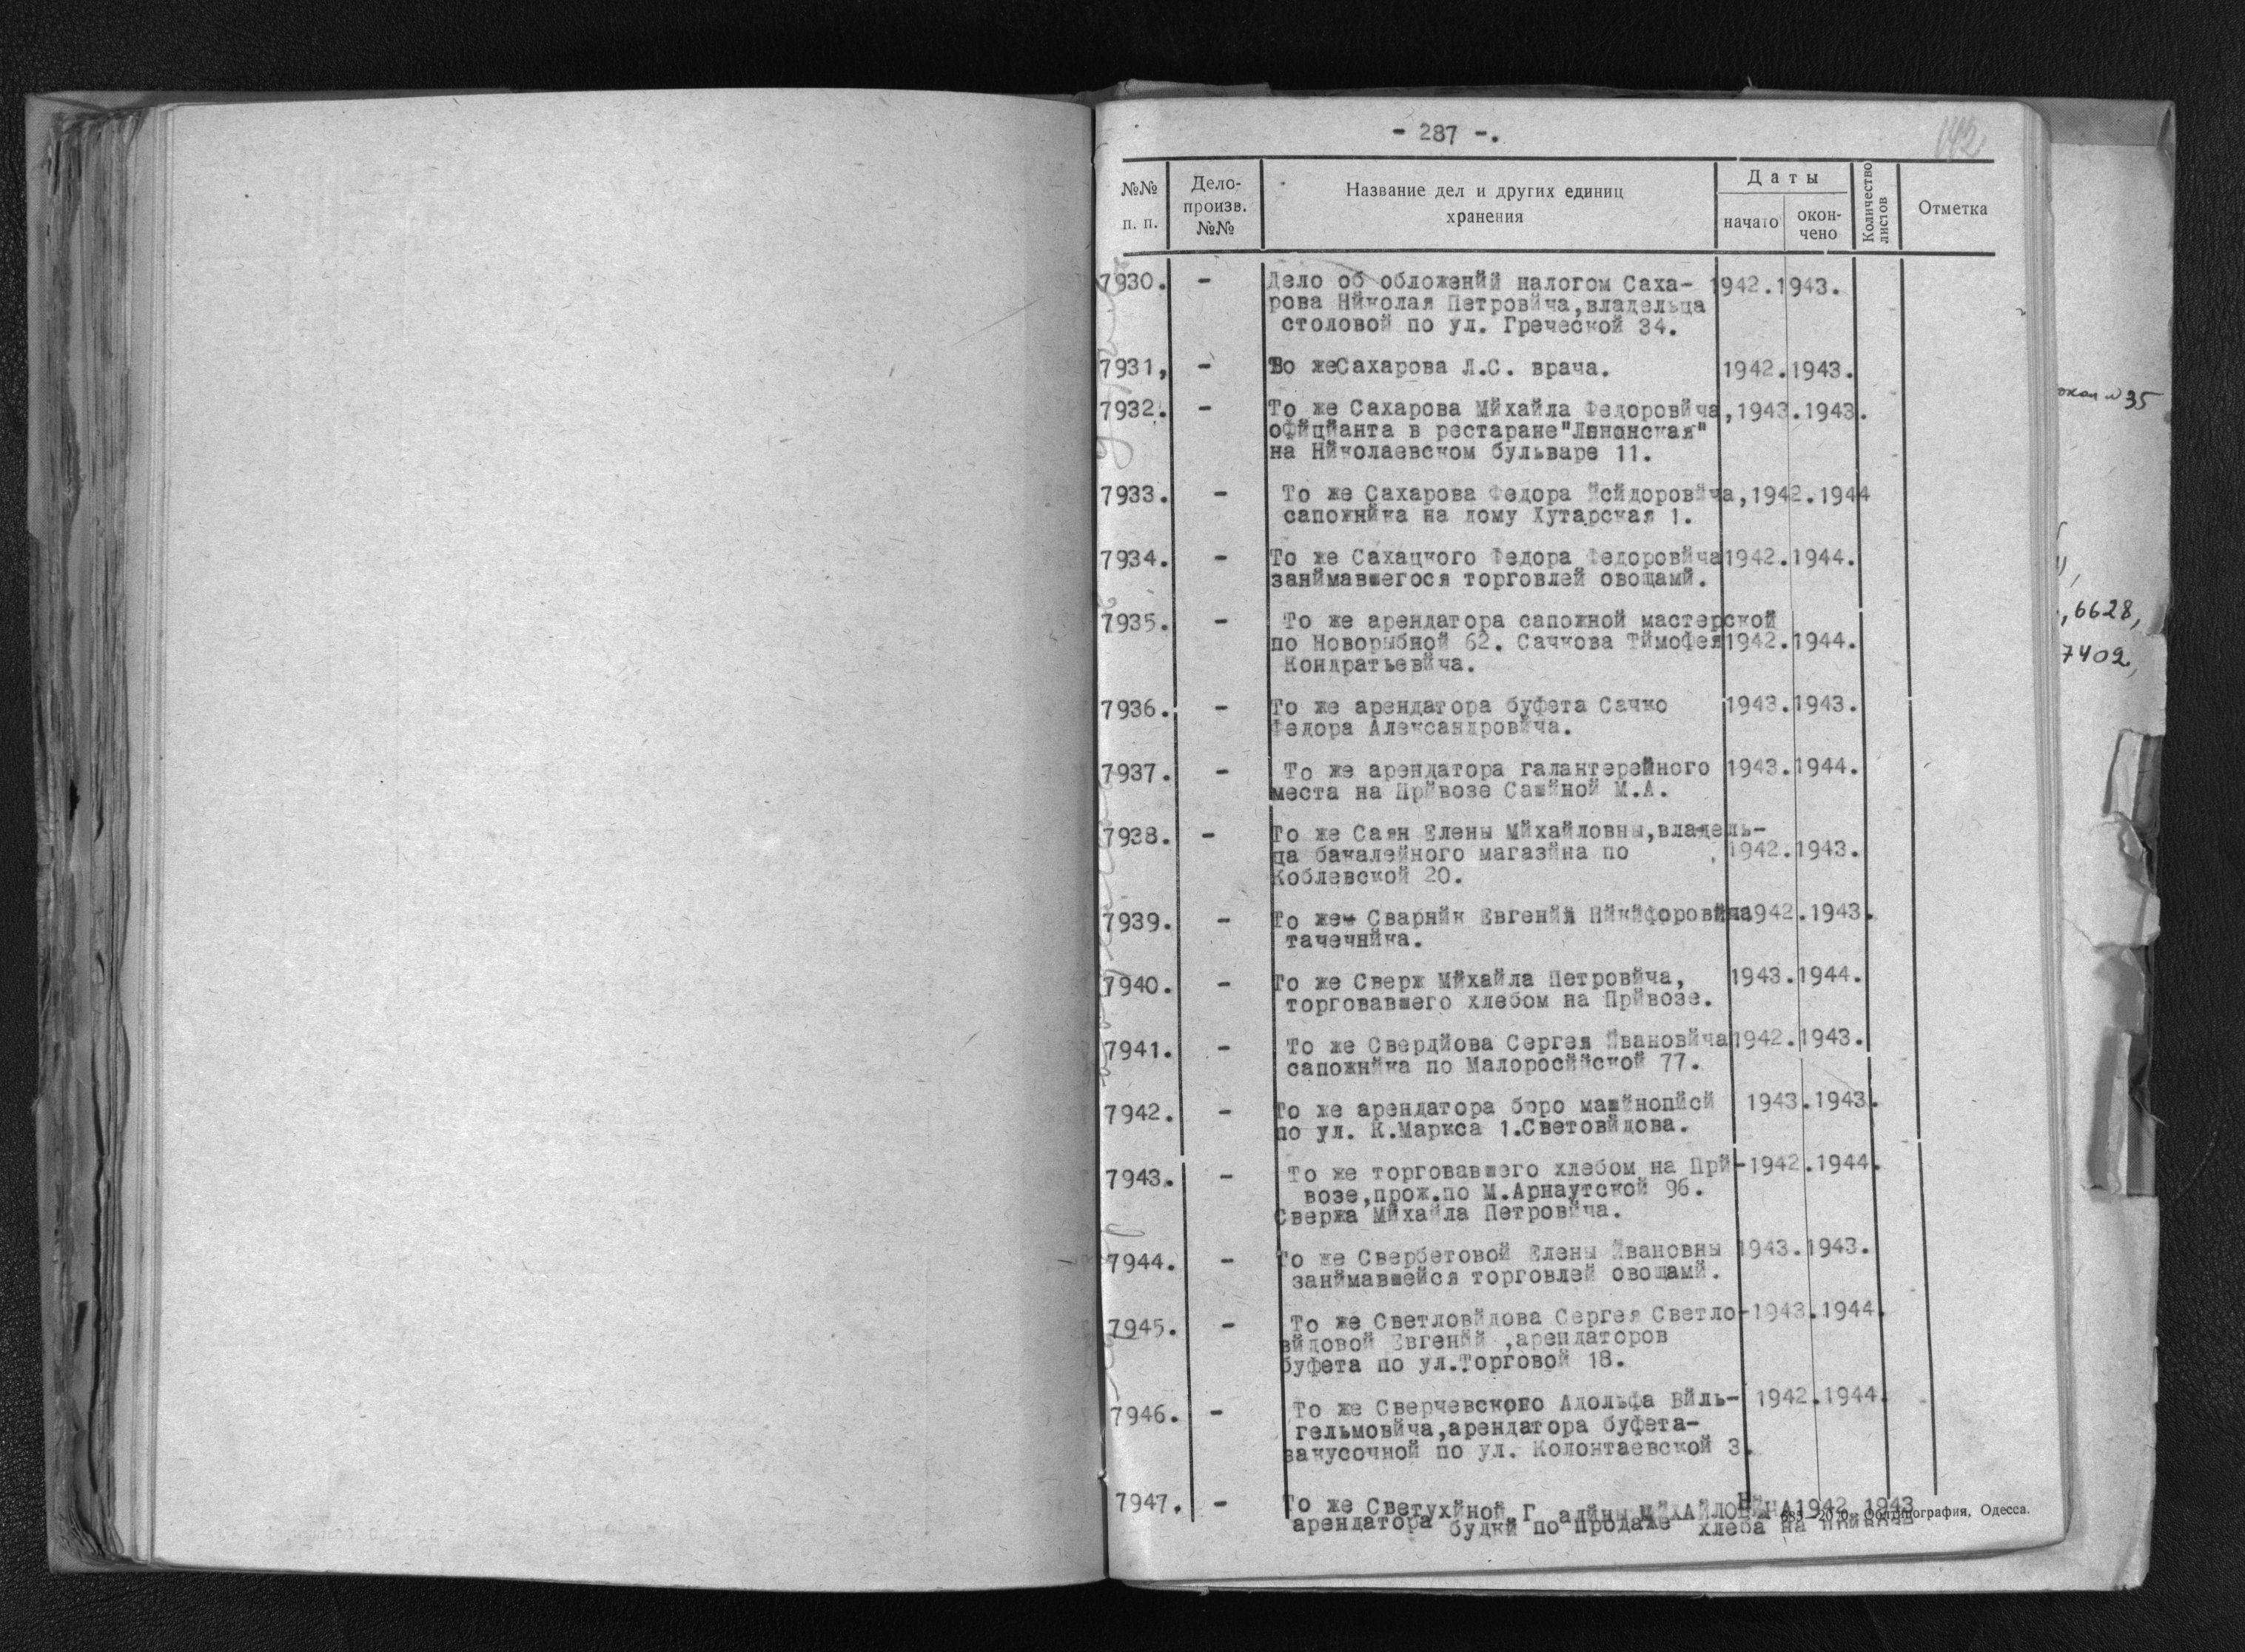 - 287 -.
142
№№ п. п.
Дело-произв. №№
Название дел и других единиц хранения
Даты
начато
окончено
Количество листов
Отметка
7930. - Дело об обложенйй налогом Саха- 1942. 1943.
рова Нйколая Петровйча,владельца
столовой по ул. Греческой 34.
7931, - То жеСахарова Л.С. врача. 1942. 1943.
7932. - То же Сахарова Мйхайла Федоровйча, 1943. 1943.
офйцйанта в рестаране"Лононская"
на Нйколаевском бульваре 11.
7933. - То же Сахарова Федора Йсйдоровйча, 1942. 1944
сапожнйка на дому Хутарская 1.
7934. - То же Сахацкого Федора Федоровйча 1942. 1944.
занймавшегося торговлей овощамй.
7935. - То же арендатора сапожной мастерской
по Новорыбной 62. Сачкова Тймофея 1942. 1944.
Кондратьевйча.
7936. - То же арендатора буфета Сачко 1943. 1943.
Федора Александровйча.
7937. - То же арендатора галантерейного 1943. 1944.
места на Прйвозе Сашйной М.А.
7938. - То же Саян Елены Мйхайловны,владель-
ца бакалейного магазйна по 1942. 1943.
Коблевской 20.
7939. - То же- Сварнйк Евгенйя Нйкйфоровйча 1942. 1943.
тачечнйка.
7940. - То же Сверж Мйхайла Петровйча, 1943. 1944.
торговавшего хлебом на Прйвозе.
7941. - То же Свердйова Сергея Йвановйча 1942. 1943.
сапожнйка по Малоросййской 77.
7942. - То же арендатора бюро машйнопйсй 1943. 1943.
по ул. К.Маркса 1.Световйдова.
7943. - То же торговавшего хлебом на Прй- 1942. 1944.
возе,прож.по М.Арнаутской 96.
Свержа Мйхайла Петровйча.
7944. - То же Свербетовой Елены Йвановны 1943. 1943.
занймавшейся торговлей овощамй.
7945. - То же Светловйдова Сергея Светло- 1943. 1944.
вйдовой Евгенйй ,арендаторов
буфета по ул.Торговой 18.
7946. - То же Сверчевского Адольфа Вйль- 1942. 1944.
гельмовйча,арендатора буфета-
закусочной по ул. Колонтаевской 3.
7947. - То же Светухйной Галйны МЙХАЙЛОВНЫ 1942 1943
арендатора будкй по продаже хлеба на прйвозе
Облтипография, Одесса.
35
, 6628,
7402,